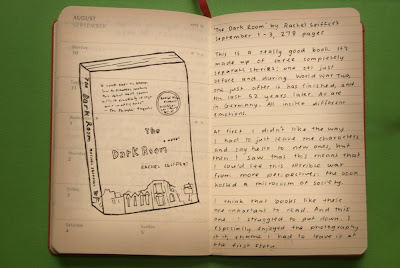 AUGUST
SEPTEMBER
The Dark Room
a novel
RACHEL SEIFFERT
The Dark Room
'The Dark Room' by Rachel Seiffert
September 1-3, 278 pages
This is a really good book. It's
made up of three completely
separate stories; one set just
before and during World War Two,
one just after it has finished, and
the last 52 years later. All are
in Germany. All incite different
emotions.
At first I didn't like the way
I had to just leave the characters
and say hello to new ones, but
then I saw that this means that
I could see this horrible war
from more perspectives; the book
holded a microcosm of society.
I think that books like these
are important to read. And this
one I struggled to put down. I
especially enjoyed the photography
in it, shame I had to leave it at
the first story.